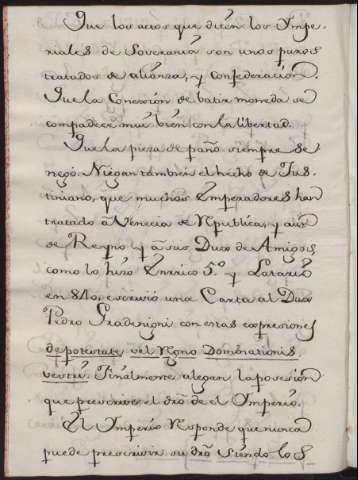 Que los actos que dicen los Impe-
riales de Soverania son unos puros
tratados de alianza, y Confederacion.
Que la Concesion de batir moneda se
compadece mui bien con la libertad.
Que la pieza de paño siempre se
negó Niegan tambien el hecho de Jus-
tiniano, que muchos Emperadores han
tratado à Venecia de Republica, y aun
de Reyno, y à sus Dux de Amigos,
como lo hizo Enrrico 5º y Lotario
en 840, escrivió una Carta al Dux
Pedro Gradenigni con estas expresiones
de potestate vel Regno Dominationis
vestræ. Finalmente alegan la posesion
que prescrive el dro de el Imperio.
El Imperio Responde que nunca
puede prescrivir su dro siendo los